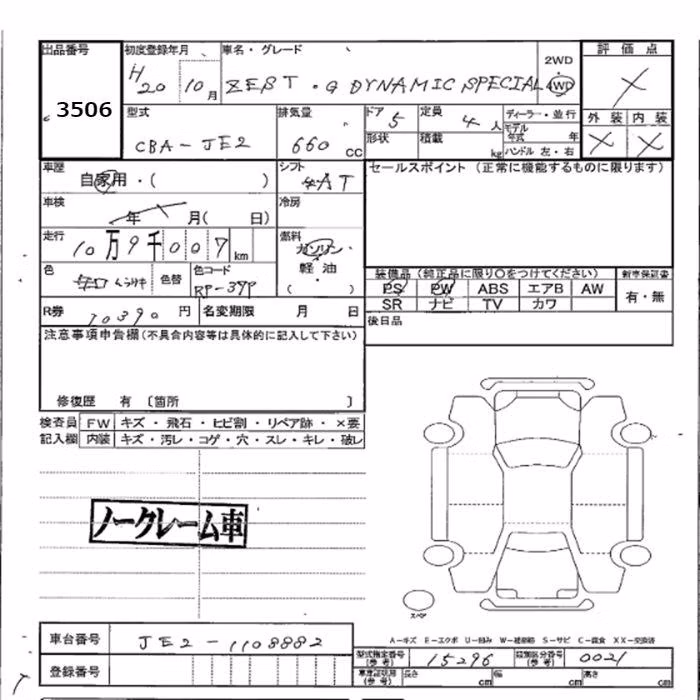 出品番号 初度登録年月 車名・グレード 2WD 評価点
3506 H20 10月 ZEST・G DYNAMIC SPECIAL 4WD
型式 排気量 ドア 5 定員 4人 ディーラー・並行 外装 内装
CBA-JE2 660 CC 形状 積載 kg モデル年式 年
ハンドル 左・右
車歴 シフト セールスポイント (正常に機能するものに限ります)
自家用・( ) AT
車検 年 月( 日) 冷房
走行 10万9千007km 燃料 ガソリン・
軽油・
( )
色 色替 色コード
RP-37P
装備品 (純正品に限り○をつけてください) 新車保証書
PS PW ABS エアB AW 有・無
SR ナビ TV カワ
R券 10390円 名変期限 月 日
後日品
注意事項申告欄(不具合内容等は具体的に記入して下さい)
修復歴 有 〔箇所 〕
検査員 FW キズ・飛石・ヒビ割・リペア跡・×要
記入欄 内装 キズ・汚レ・コゲ・穴・スレ・キレ・破レ
ノークレーム車
スペア
A-キズ E-エクボ U-凹み W-補修跡 S-サビ C-腐食 XX-交換済
車台番号 JE2-1108882
型式指定番号(参考) 15296 類別区分番号(参考) 0021
登録番号
車庫証明用(参考) 長さ cm 幅 cm 高さ cm